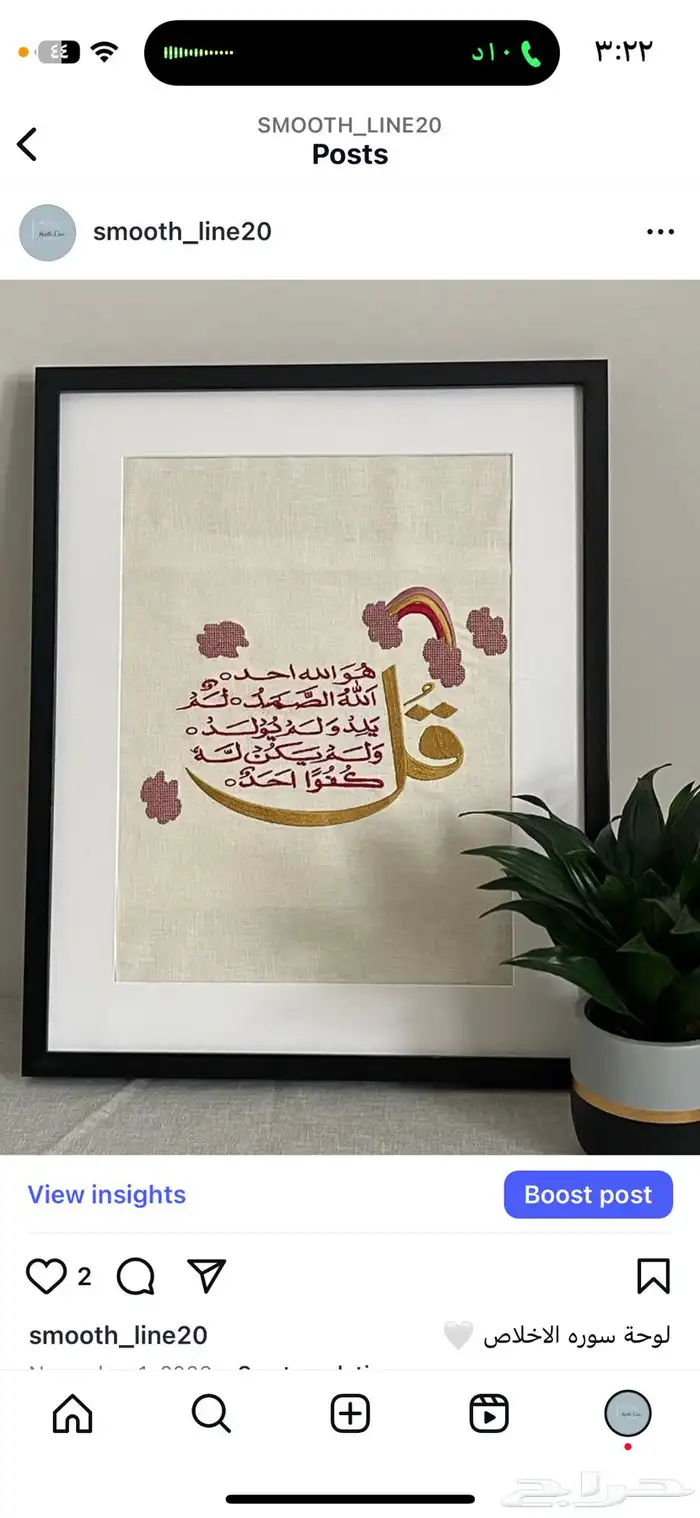 ٤٤
٠١د
٣:٢٢
SMOOTH_LINE20
Posts
smooth_line20
قُل
هُوَ الله احد
اَللهُ الصَّمَدُ لَمْ
يَلِدْ وَلَمْ يُوْلَدْ
وَلَمْ يَكُنْ لَهٗ
كُفُوًا اَحَدٌ
View insights
Boost post
2
smooth_line20
لوحة سوره الاخلاص 🤍
حراج